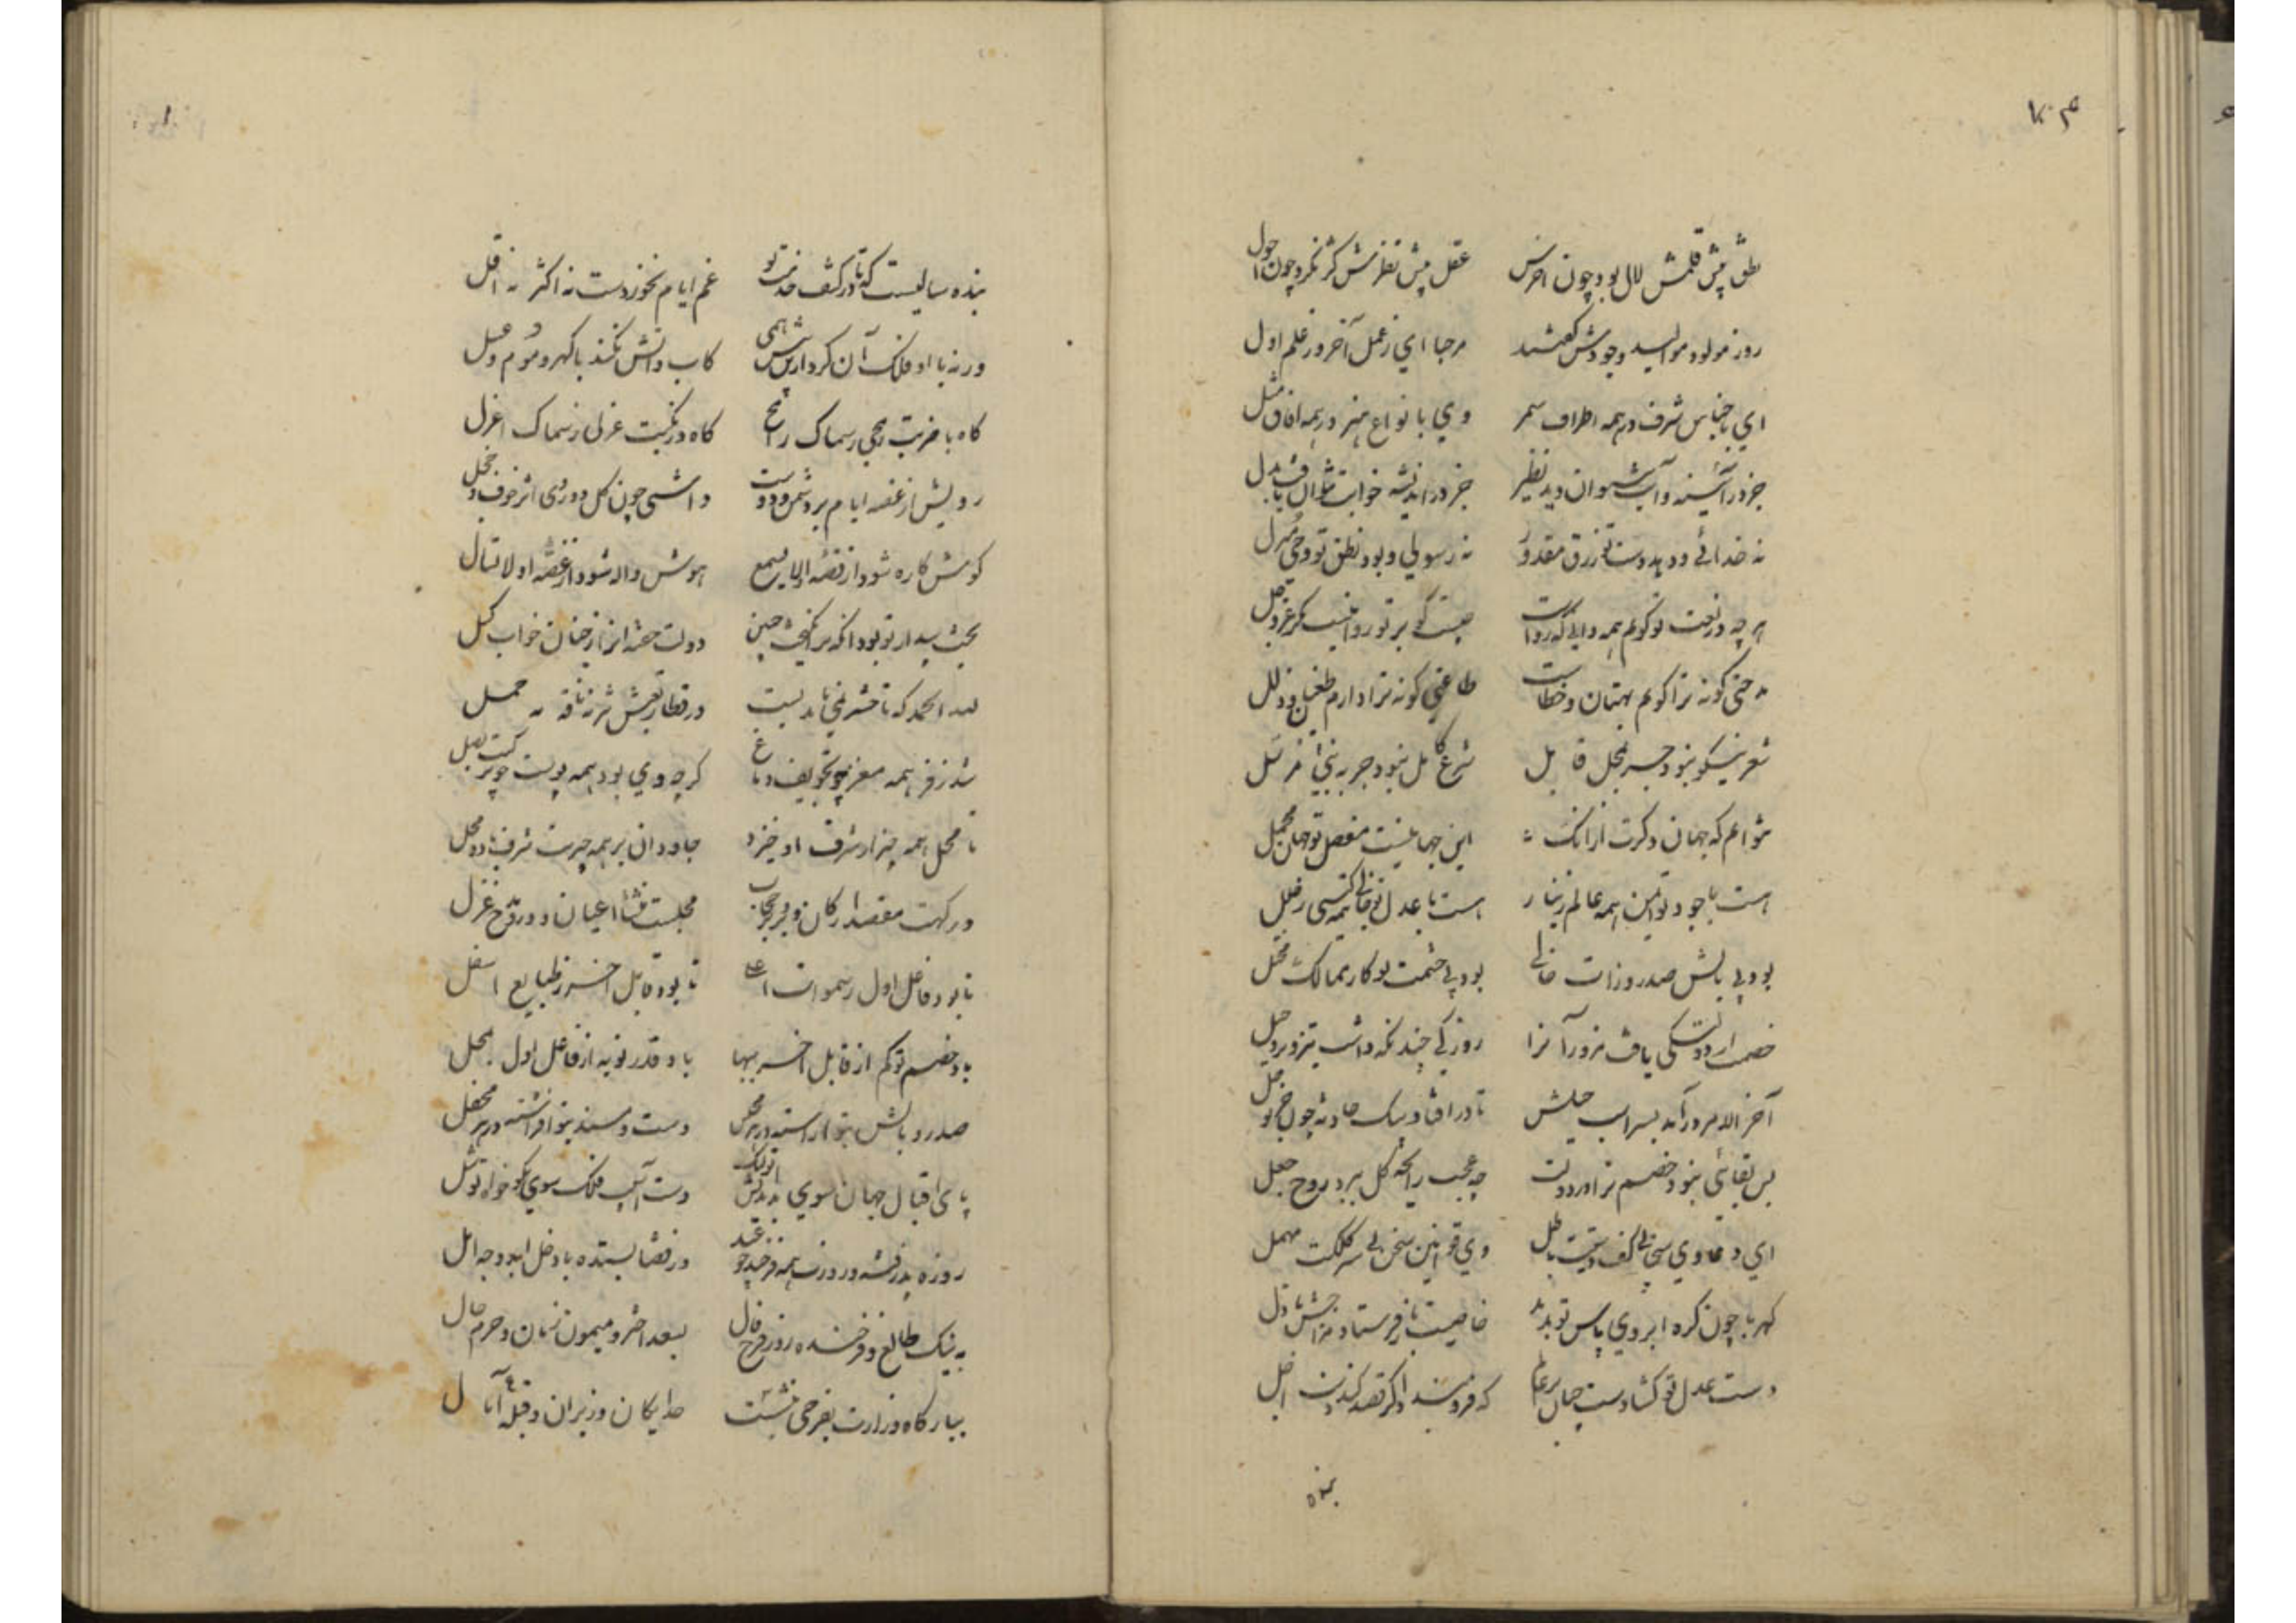 نطق پیش قلمش لال بود چون اخرس عقل پیش نظرش کژ نگرد چون احول
روز مولود موالید وجودش گفتند مرحبا ای ز عمل آخر و ز علم اول
ای باجناس شرف در همه اطراف سمر وی بانواع هنر در همه آفاق مثل
جز در آئینه و آب نتوان دید نظیر جز در اندیشه و خواب نتوان یافت بدل
نه خدائی و دهد دست تو رزق مقدور نه رسولی و بود نطق تو وحی منزل
هر چه در نعت تو گویم همه دانی که رواست
مدحتی گر نه ترا گویم بهتان و خطاست طاعتی گر نه ترا دارم طغیان و زلل
شعر نیکو نبود جز بمحل قابل شرع کامل نبود جز به نبی مرسل
این جهانیست مفصل تو جهان مجمل
هست با جود تو ایمن همه عالم ز نیاز هست با عدل تو خالی همه گیتی ز خلل
بود بی بالش صدر وزارت خالی بود بی حشمت تو کار ممالک مختل
خصمت ار دولتکی یافت مزور آنرا روزکی چند نگه داشت بتزویر و حیل
آخر الامر درآمد بسر اسب حیلش تا در افتاد بیک حادثه چون خر بوحل
بس بقائی نبود خصم ترا در دولت چه عجب رایحه گل ببرد روح جعل
ای دعاوی سخا بی کف دستت باطل وی قوانین سخن بی سر کلکت مهمل
کهربا چون گره ابروی پاس تو بدید خاصیت باز فرستاد مزاجش بازل
دست عدل تو گشادست چنان بر عالم که فرو بندد اگر قصد کند دست اجل
بنده
بنده سالیست که تا در کنف خدمت تو غم ایام نخوردست نه اکثر نه اقل
ورنه با او فلک آن کرد ازین پیش همی کاب و آتش نکند با گهر و موم و عسل
گاه با ضربت رمحی ز سماک رامح گاه در نکبت عزلی ز سماک اعزل
رویش از غصه ایام بر دشمن و دوست داشتی چون گل دوروی اثر خوف و خجل
گوش کاره شود از قصه او لا یسمع هوش واله شود از غصه او لا تسأل
بخت بیدار تو بود آنکه بر انگیخت چنین دولت خفته او را ز چنان خواب کسل
لله الحمد که تا حشر نمی باید بست در قطار تعبش نیز نه ناقه نه جمل
شد ز فر تو همه مغز چو تجویف دماغ گر چه وی بود همه پوست چو ترکیب بصل
تا محل همه چیز از شرف او خیزد جاودان بر همه چیزت شرف باد و محل
درگهت مقصد ارکان و برو بر حجاب مجلست منشأ اعیان و درو مدح و غزل
تا بود فاعل اول ز سموات اعلی تا بود قابل آخر ز طبایع اسفل
باد خصم تو کم از قابل آخر ببها باد قدر تو به از فاعل اول بمحل
صدر و بالش بتو آراسته در هر مجلس دست و مسند بتو افراشته در هر محفل
پای اقبال جهان سوی بداندیش تو لنگ دست آسیب فلک سوی نکو خواه تو شل
روزه پذرفته و روزت همه فرخ چو عید وز قضا بستده با دخل ابد وجه امل
به نیک طالع و فرخنده روز و فرخ فال بسعد اختر و میمون زمان و خرم حال
ببارگاه وزارت بفرخی بنشست خدایگان وزیران و قبله آمال